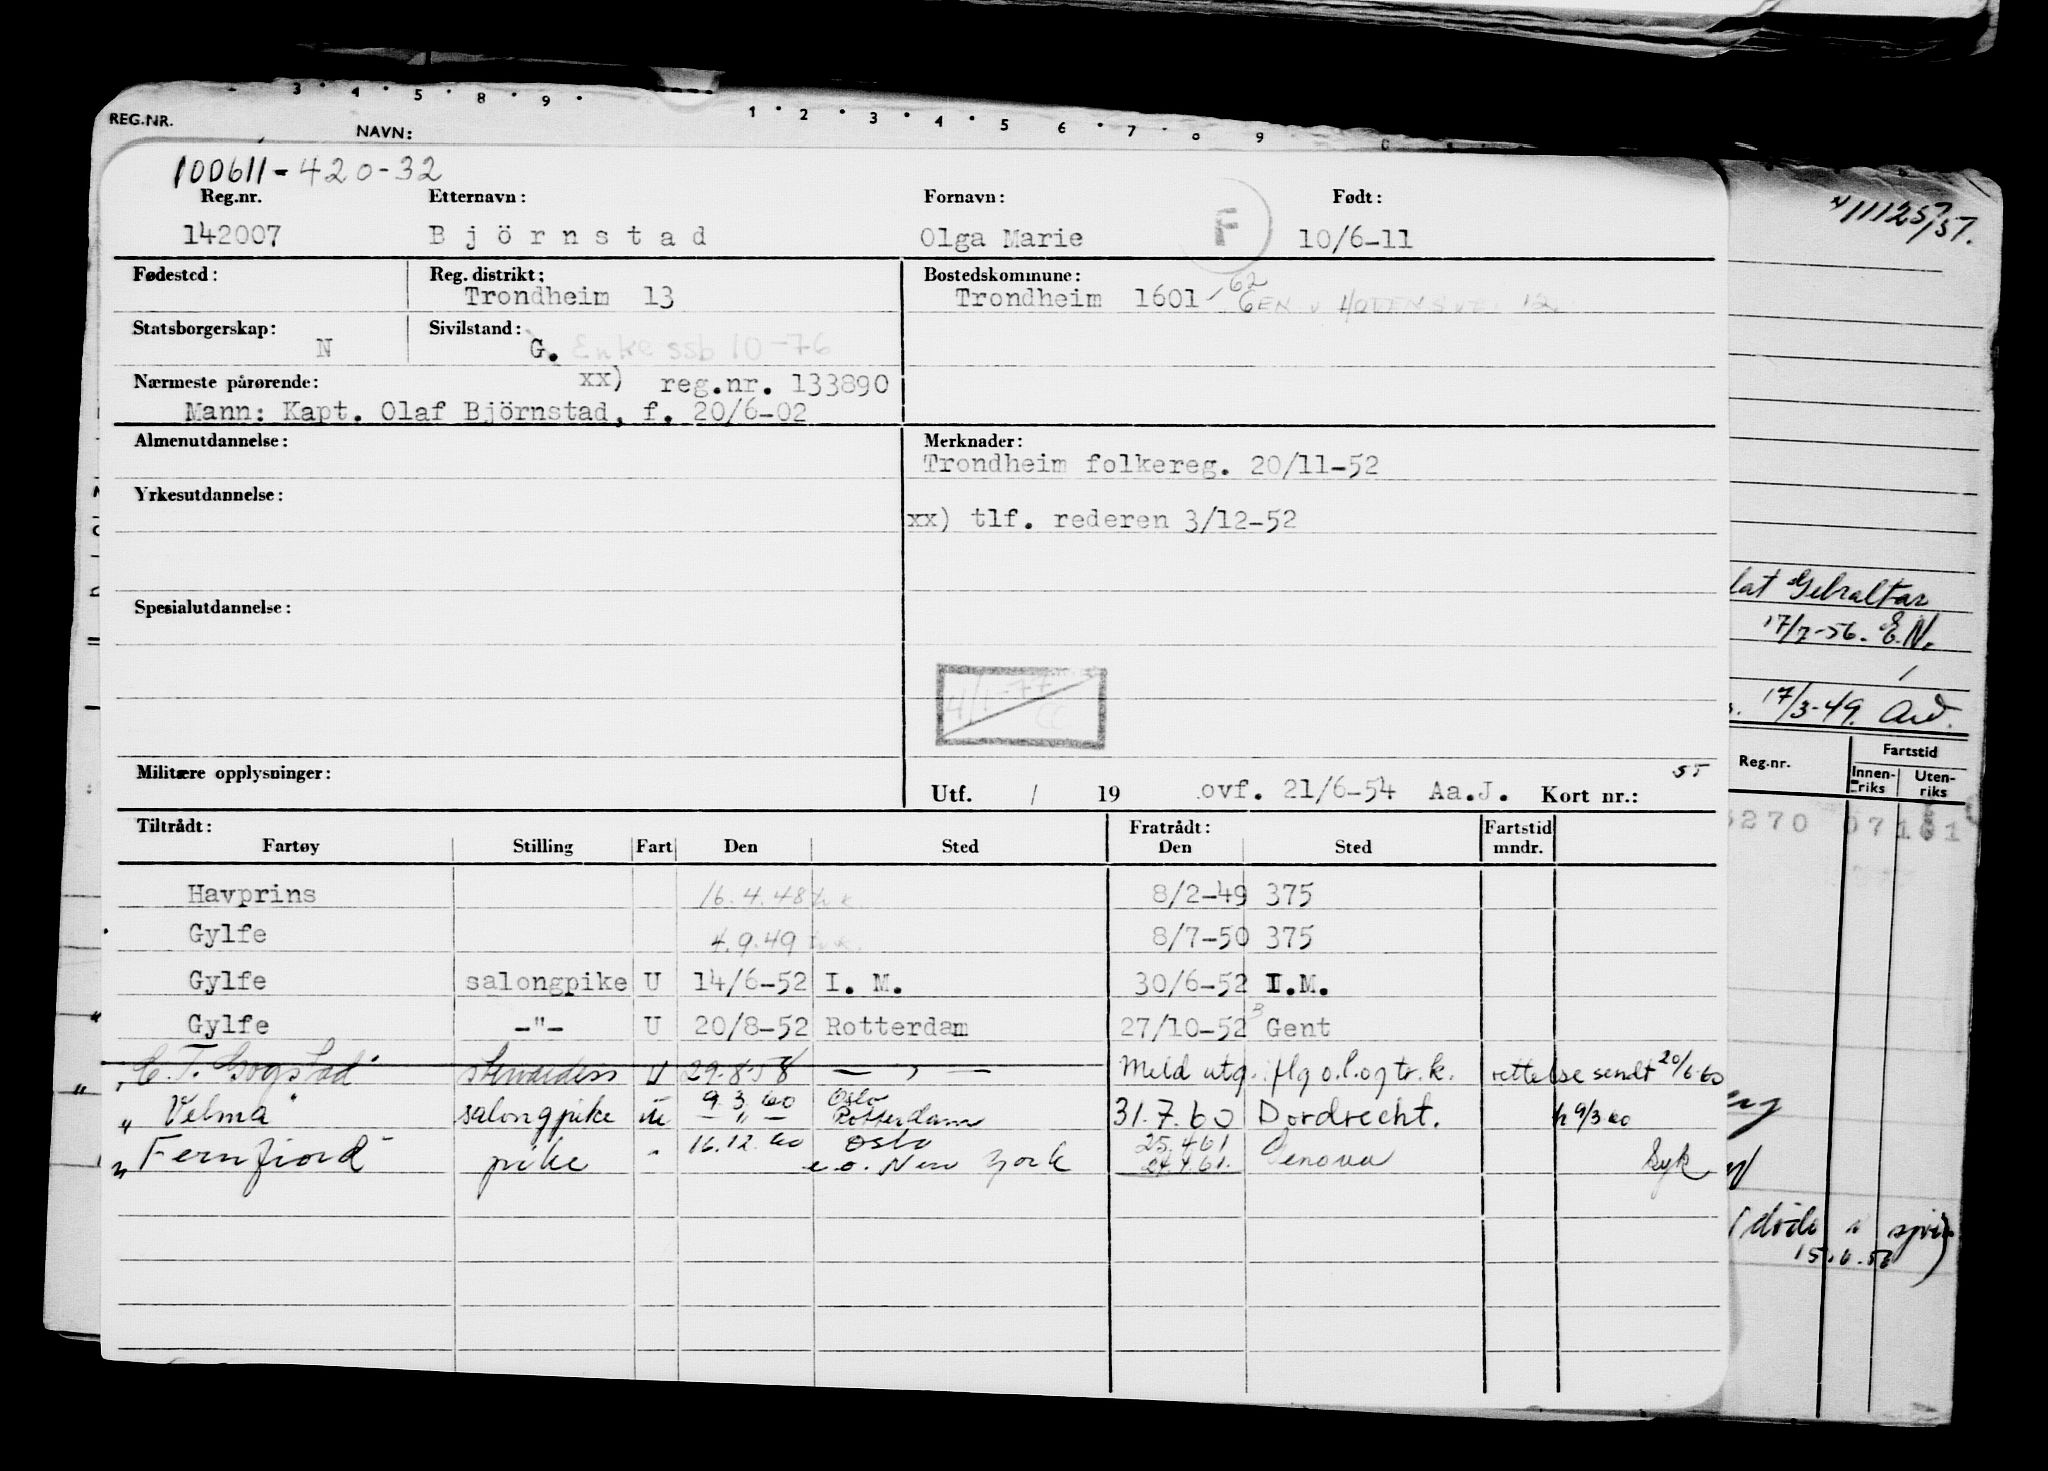 3 · 4 · 5 8 · 9 · 1 · 2 · 3 · 4 · 5 6 · 7 · 9
REG.NR. NAVN:
100611-420-32
Reg.nr. Etternavn: Fornavn: Født:
142007 Björnstad Olga Marie F 10/6-11
Fødested: Reg. distrikt: Bostedskommune:
Trondheim 13 Trondheim 1601 62
Statsborgerskap: Sivilstand:
N G. Enke ssb 10-76
Nærmeste pårørende: xx) reg.nr. 133890
Mann: Kapt. Olaf Björnstad, f. 20/6-02
Almenutdannelse: Merknader:
Trondheim folkereg. 20/11-52
Yrkesutdannelse:
xx) tlf. rederen 3/12-52
Spesialutdannelse:
4/1-77
CC
Militære opplysninger:
Utf. / 19 ovf. 21/6-54 Aa.J. Kort nr.: 55
Tiltrådt: Fratrådt: Fartstid
Fartøy Stilling Fart Den Sted Den Sted mndr.
Havprins 16.4.48 8/2-49 375
Gylfe 4.9.49 8/7-50 375
Gylfe salongpike U 14/6-52 I. M. 30/6-52 I.M.
" Gylfe -"- U 20/8-52 Rotterdam 27/10-52 Gent
" C.T. Gogstad" U 29.8.58 — " — Meld utg. iflg o.l. og tr.k. rettelse sendt 20/6-60
" Velma" salongpike 9.3.60 Oslo
— " — Rotterdam 31.7.60 Dordrecht. 9/3 60
" Fernfiord" pike " 16.12.60 Oslo 25.4.61
e.o. New York 24.4.61. Genova Syk
111257/57.
lat Gibraltar
17/7-56. E.N.
17/3-49. Ad.
Reg.nr. Fartstid
Innen-riks Uten-riks